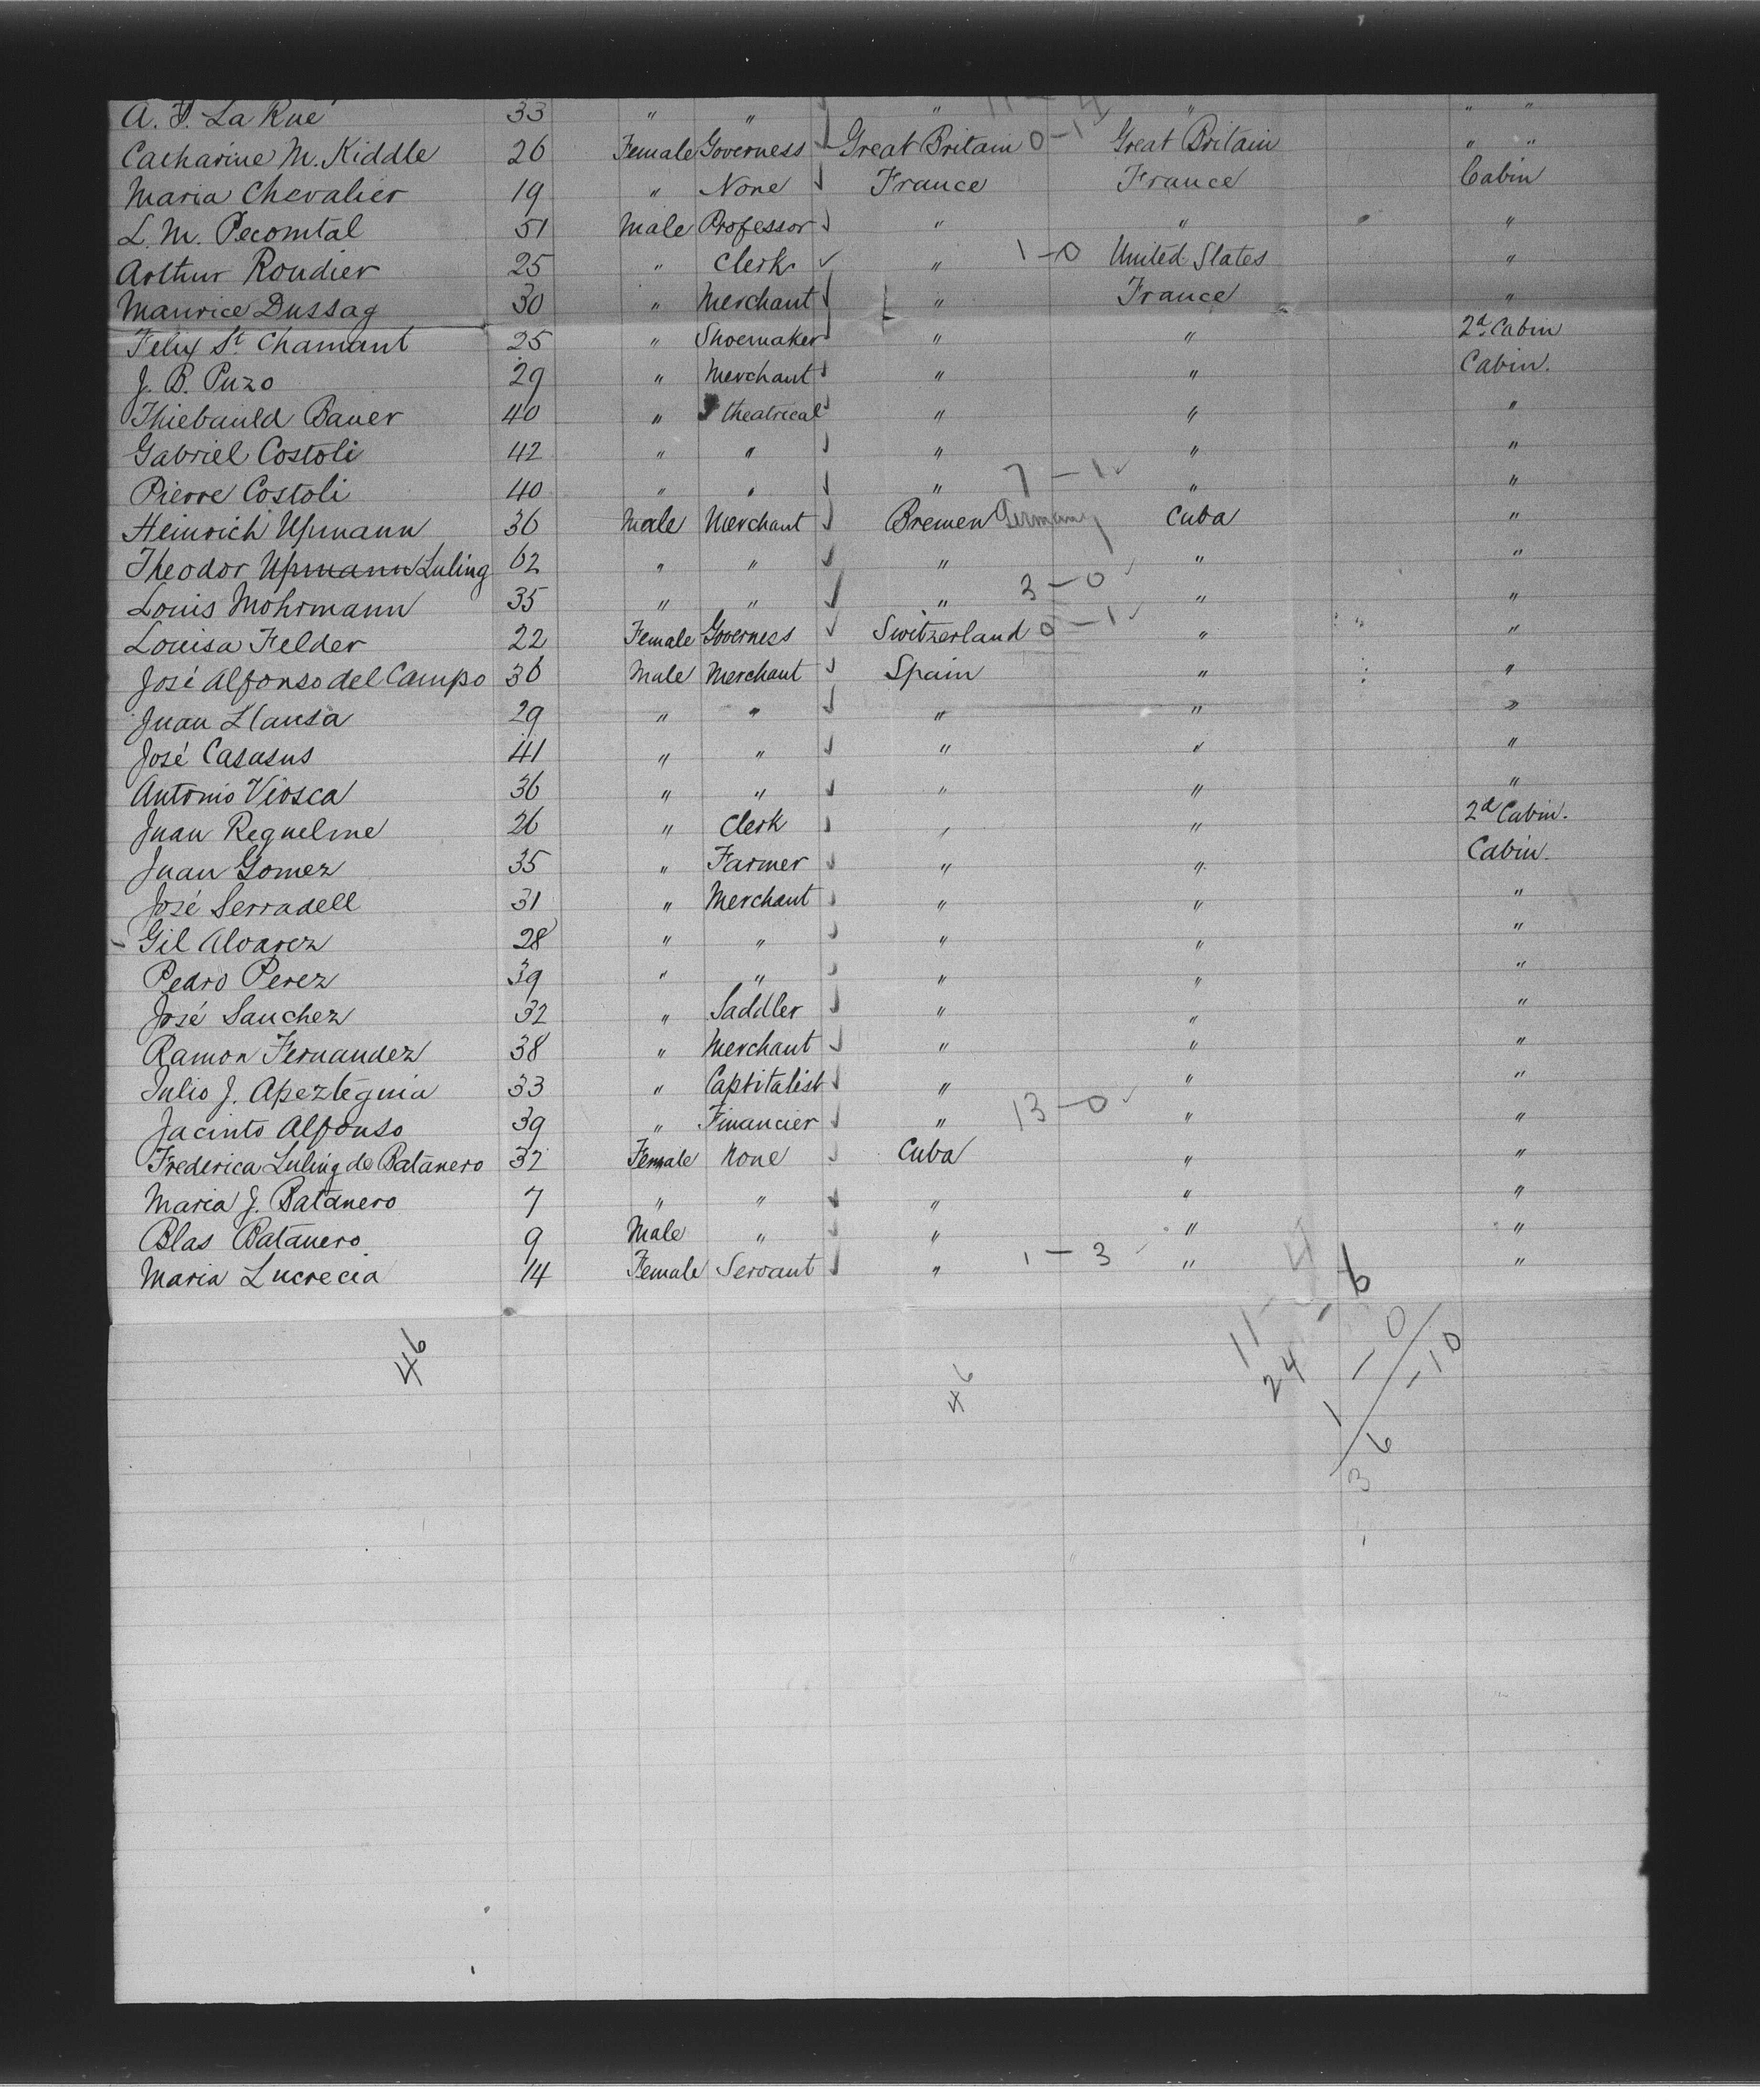 A. F. La Rue 33 " " " 11 - 4 " " "
Catharine M. Kiddle 26 Female Governess Great Britain 0-1 Great Britain " "
Maria Chevalier 19 " None France France Cabin
L. M. Pecomtal 51 Male Professor " " "
Arthur Roudier 25 " Clerk " 1-0 United States "
Maurice Dussaq 30 " Merchant " France "
Felix St. Chamant 25 " Shoemaker " " 2d. Cabin
J. B. Puzo 29 " Merchant " " Cabin.
Thiebauld Bauer 40 " theatrical " " "
Gabriel Costoli 42 " " " " "
Pierre Costoli 40 " " " 7-1 " "
Heinrich Upmann 36 Male Merchant Bremen Germany Cuba "
Theodor Upmann Luling 62 " " " " "
Louis Mohrmann 35 " " " 3-0 " "
Louisa Felder 22 Female Governess Switzerland 0-1 " "
José Alfonso del Campo 36 Male Merchant Spain " "
Juan Llansa 29 " " " " "
José Casasus 41 " " " " "
Antonio Viosca 36 " " " " "
Juan Requelme 26 " Clerk " " 2d Cabin.
Juan Gomez 35 " Farmer " " Cabin.
José Serradell 31 " Merchant " " "
Gil Alvarez 28 " " " " "
Pedro Perez 39 " " " " "
José Sanchez 32 " Saddler " " "
Ramon Fernandez 38 " Merchant " " "
Julio J. Apezteguia 33 " Capitalist " " "
Jacinto Alfonso 39 " Financier " 13-0 " "
Frederica Luling de Batanero 32 Female None Cuba " "
Maria J. Batanero 7 " " " " "
Blas Batanero 9 Male " " " "
Maria Lucrecia 14 Female Servant " 1-3 " "
46 46 11 - 4
24 - 6
1 - 0
36 - 10